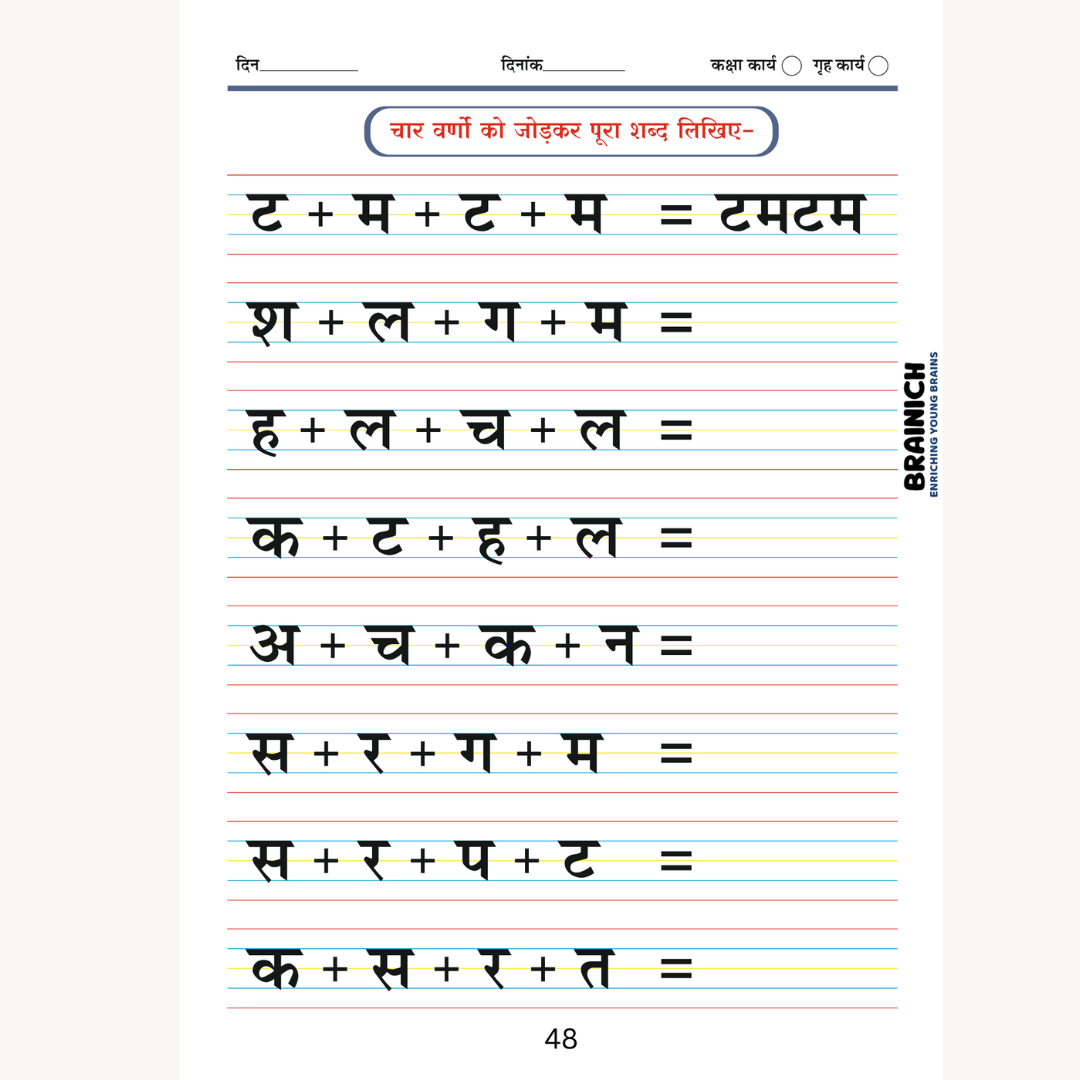 दिन__________ दिनांक__________ कक्षा कार्य ◯ गृह कार्य ◯
चार वर्णो को जोड़कर पूरा शब्द लिखिए-
ट + म + ट + म = टमटम
श + ल + ग + म =
ह + ल + च + ल =
क + ट + ह + ल =
अ + च + क + न =
स + र + ग + म =
स + र + प + ट =
क + स + र + त =
48
BRAINICH
ENRICHING YOUNG BRAINS